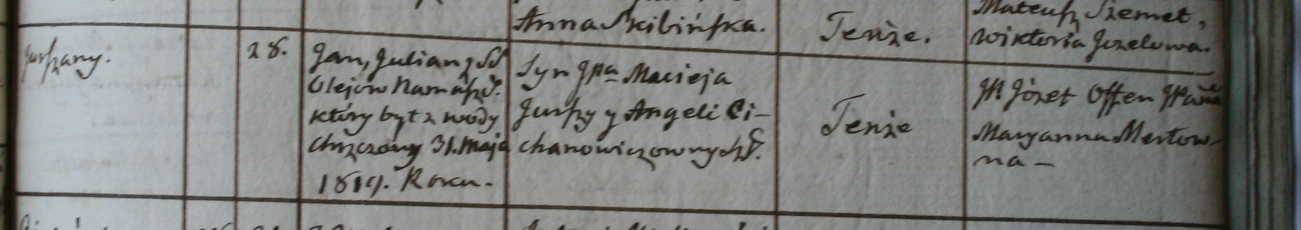 Anna Skibińska.
Tenże.
Mateusz Szemet,
Wiktoria Jozelowa.
Jurszany.
28.
Jan, Julian z SS
Olejow Namaszcz.
który był z wody
chrzczony 31. Maja
1819. Roku.
Syn JPa Macieja
Jurszy y Angeli Ci-
chanowiczowny
Tenże
JP. Jozef Offen JPanna
Maryanna Mertow-
na -